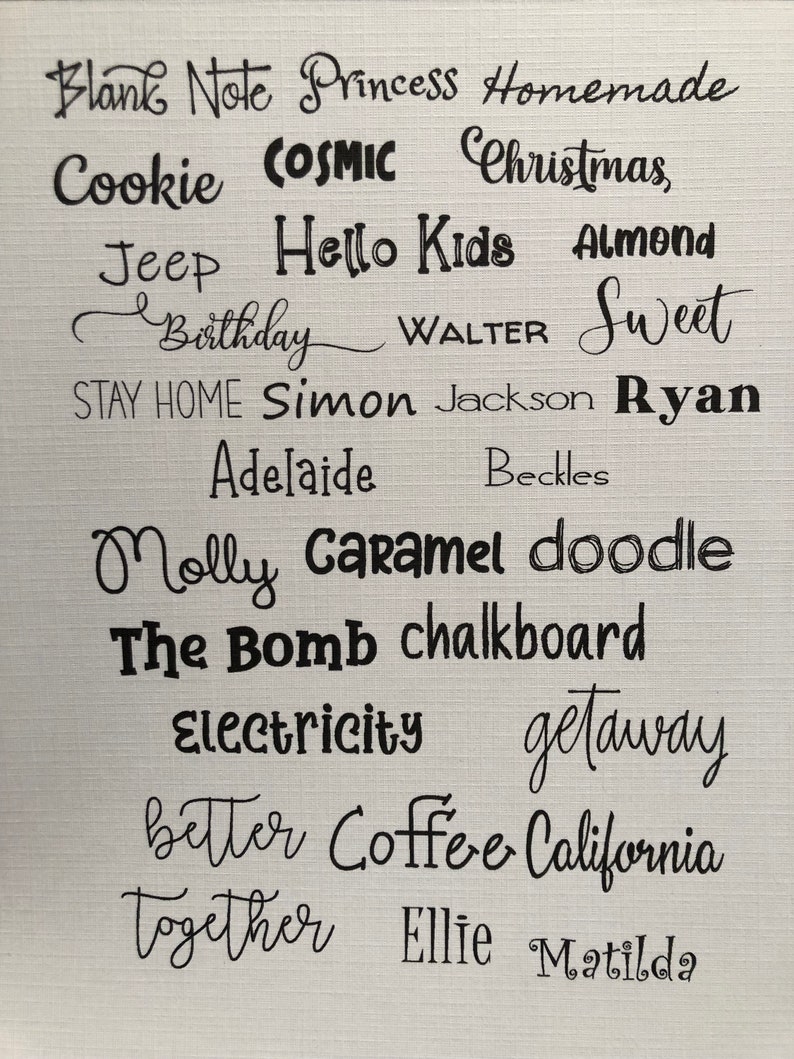 Blank Note Princess Homemade
Cookie COSMIC Christmas,
Jeep Hello Kids Almond
Birthday WALTER Sweet
STAY HOME Simon Jackson Ryan
Adelaide Beckles
Molly Caramel doodle
The Bomb chalkboard
Electricity getaway
better Coffee California
together Ellie Matilda